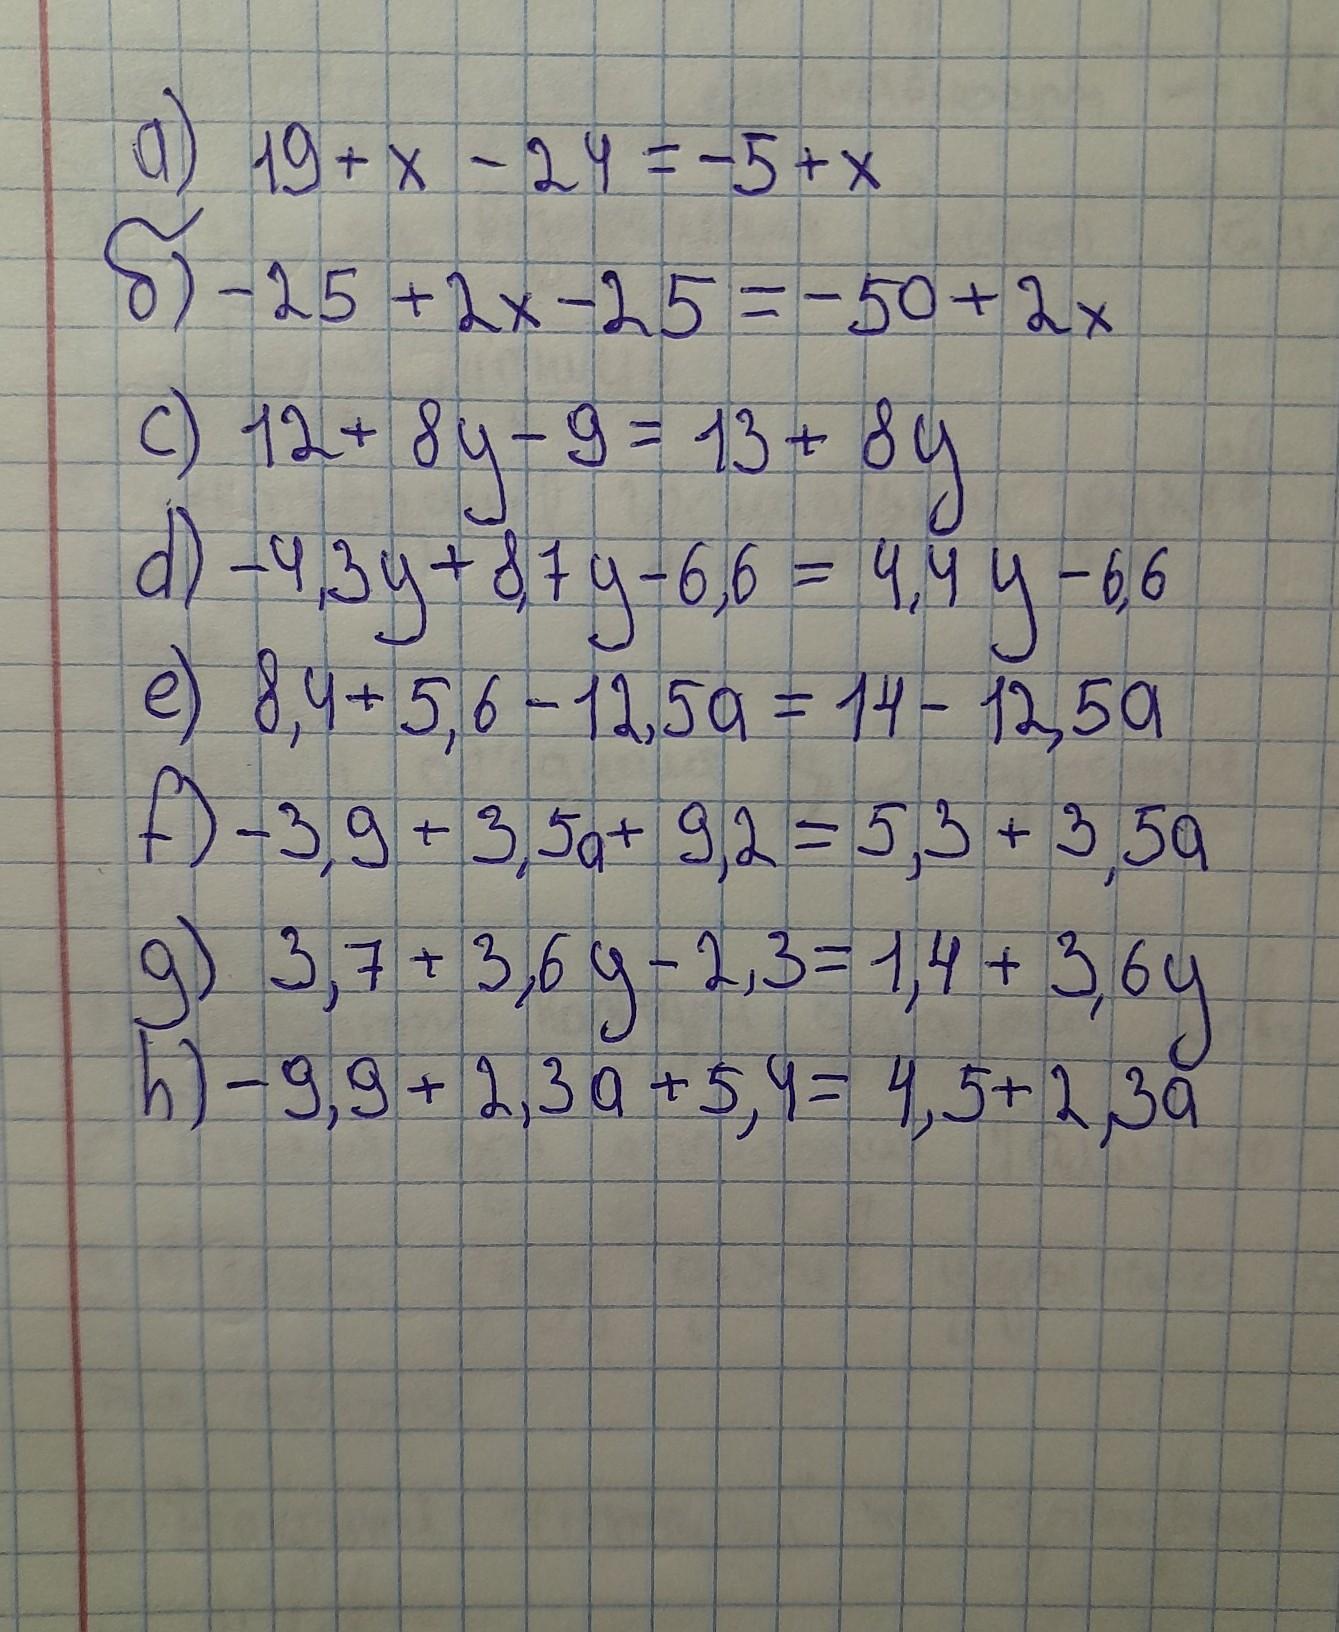 а) 19 + x - 24 = -5 + x
б) -25 + 2x - 25 = -50 + 2x
c) 12 + 8y - 9 = 13 + 8y
d) -4,3y + 8,7y - 6,6 = 4,4y - 6,6
e) 8,4 + 5,6 - 12,5a = 14 - 12,5a
f) -3,9 + 3,5a + 9,2 = 5,3 + 3,5a
g) 3,7 + 3,6y - 2,3 = 1,4 + 3,6y
h) -9,9 + 2,3a + 5,4 = 4,5 + 2,3a